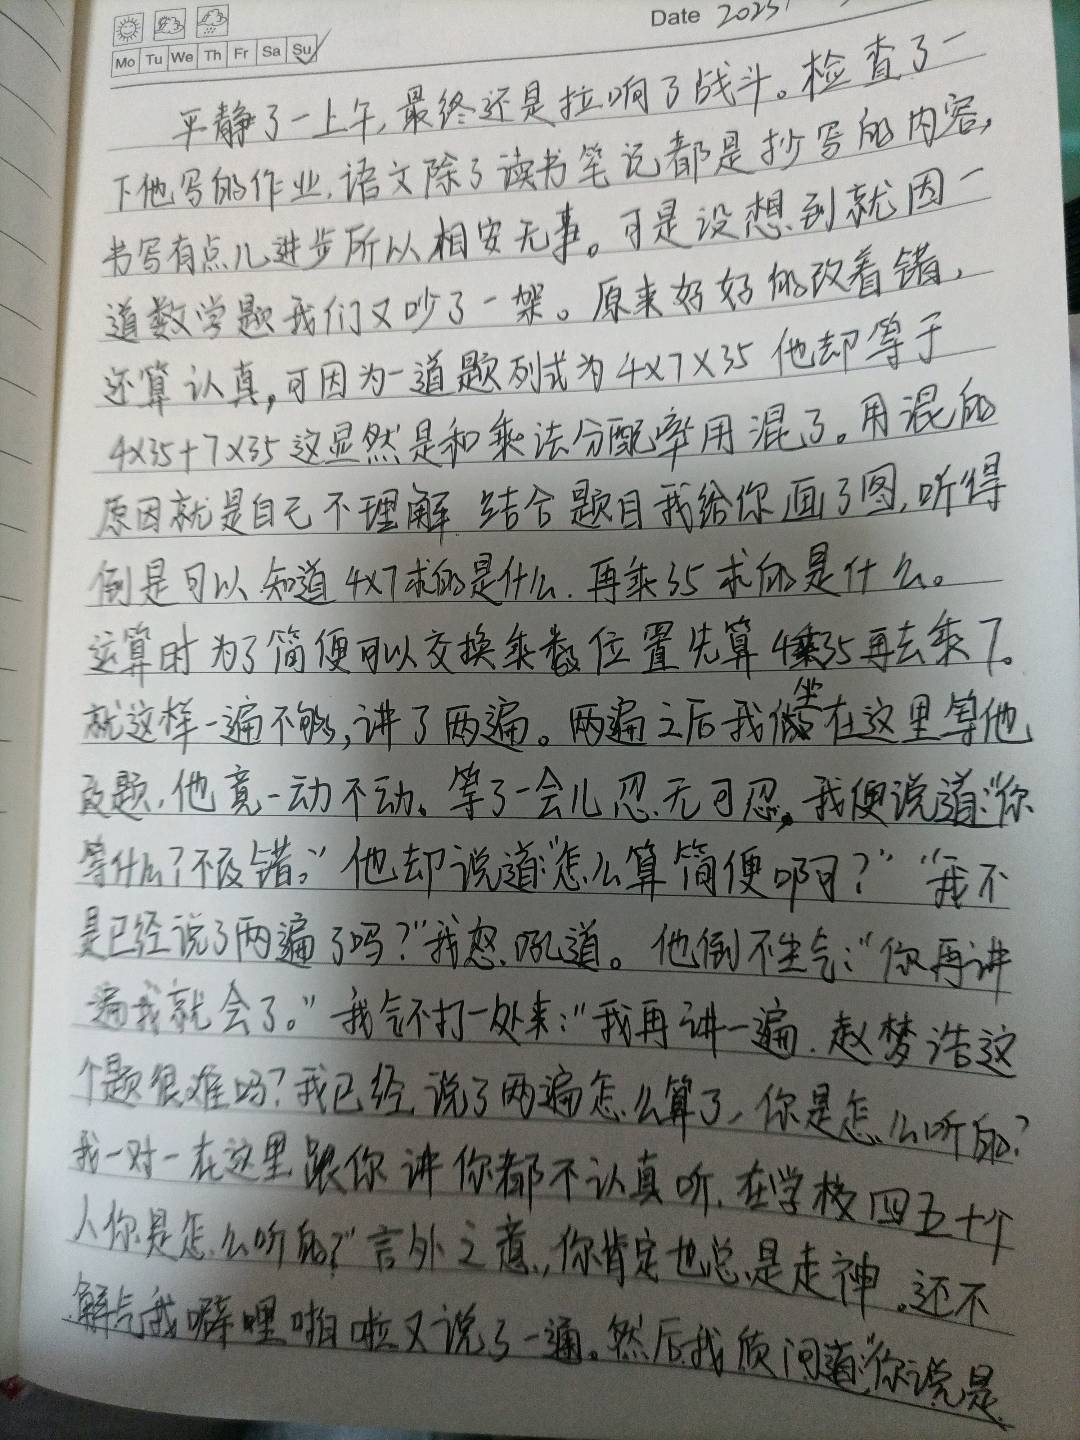 Date 2025
Mo Tu We Th Fr Sa Su
平静了一上午,最终还是拉响了战斗。检查了一
下他写的作业,语文除了读书笔记都是抄写的内容,
书写有点儿进步所以相安无事。可是没想到就因一
道数学题我们又吵了一架。原来好好的改着错,
还算认真,可因为一道题列式为4×7×35 他却等于
4×35+7×35这显然是和乘法分配率用混了。用混的
原因就是自己不理解 结合题目我给你画了图,听得
倒是可以 知道4×7求的是什么.再乘35求的是什么。
运算时为了简便可以交换乘数位置先算4乘35再去乘7。
就这样一遍不够,讲了两遍。两遍之后我坐在这里等他
改题,他竟一动不动。等了一会儿忍无可忍,我便说道:“你
等什么?不改错。”他却说道:“怎么算简便啊?”“我不
是已经说了两遍了吗?”我怒吼道。他倒不生气:“你再讲
一遍我就会了。”我气不打一处来:“我再讲一遍.赵梦浩这
个题很难吗?我已经说了两遍怎么算了,你是怎么听的?
我一对一在这里跟你讲你都不认真听.在学校四五十个
人你是怎么听的?”言外之意,你肯定也总是走神。还不
解气我噼哩啪啦又说了一通。然后我质问道:“你说是